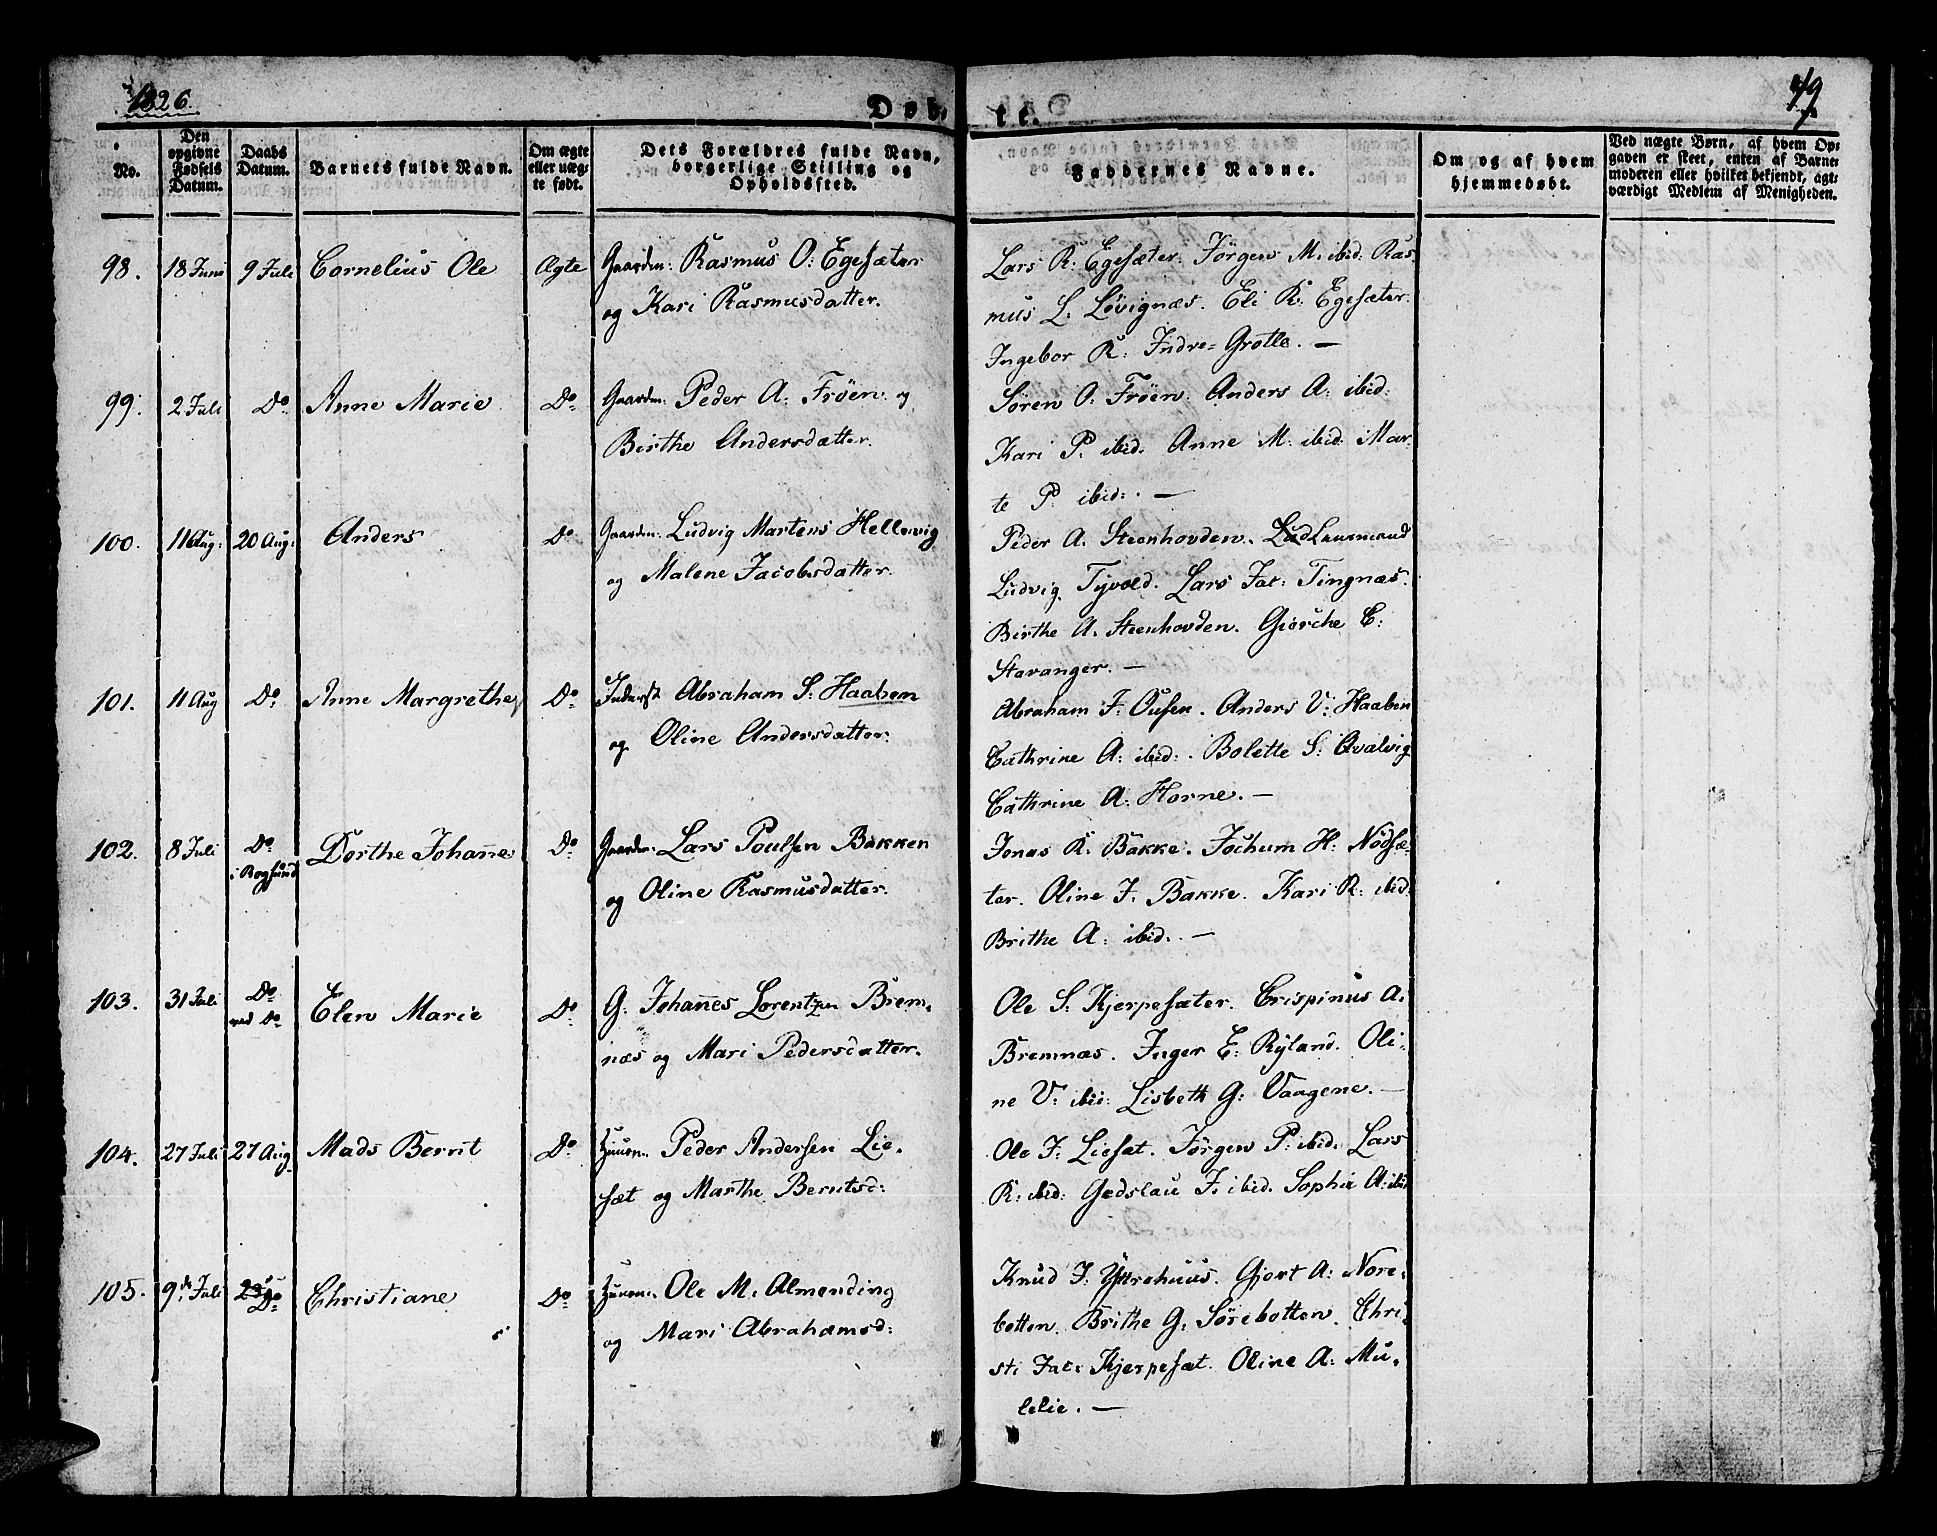 1826.
Døb-
te.
79
No.
Den opgivne Fødsels Datum.
Daabs Datum.
Barnets fulde Navn.
Om ægte eller uægte født.
Dets Forældres fulde Navn, borgerlige Stilling og Opholdssted.
Faddernes Navne.
Om og af hvem hjemmedøbt.
Ved uægte Børn, af hvem Opgaven er skeet, enten af Barnemoderen eller hvilket bekjendt, agtværdigt Medlem af Menigheden.
98. 18 Juni 9 Juli Cornelius Ole Ægte Gaardm: Rasmus O: Egesæter
og Kari Rasmusdatter.
Lars R: Egesæter. Jörgen M. ibid: Ras
mus L. Lövignæs. Eli R: Egesæter.
Ingebor R: Indre=Grotle. —
99. 2 Juli Do Anne Marie Do Gaardm: Peder A: Fröen og
Birthe Andersdatter.
Sören O. Fröen. Anders A: ibid:
Kari P. ibid. Anne M: ibid. Mar
te P. ibid:. —
100. 11 Aug: 20 Aug: Anders Do Gaardm: Ludvig Martens Hellevig
og Malene Jacobsdatter.
Peder A. Steenhovden. Lensmand
Ludvig Tijvold. Lars Jac: Tingnæs.
Birthe A. Steenhovden. Giørche C:
Stavanger. —
101. 11 Aug Do Anne Margrethe Do Inderst Abraham S: Haaben
og Oline Andersdatter.
Abraham J. Ousen. Anders V: Haaben
Cathrine A: ibid:. Bolette S: Qvalvig
Cathrine A: Horne. —
102. 8 Juli Do i Bogsund Dorthe Johanne Do Gaardm: Lars Poulsen Bakken
og Oline Rasmusdatter.
Jonas R: Bakke. Jochum H: Nödsæ-
ter. Oline J. Bakke. Kari R: ibid.
Brithe A: ibid. —
103. 31 Juli Do ved Do Elen Marie Do G: Johannes Lorentzen Brem-
næs og Mari Pedersdatter.
Ole S. Kjerpesæter. Crispinus A:
Bremnæs. Inger E: Ryland. Oli-
ne V: ibid: Lisbeth G: Vaagene. —
104. 27 Juli 27 Aug Mads Bernt Do Huusm. Peder Andersen Lie-
sæt og Marthe Berntsd:
Ole J: Liesæt. Jörgen P: ibid. Lars
R: ibid: Gedslau J. ibid. Sophie A: ibid
105. 9de Juli Do Christiane Do Huusm. Ole M. Almending
og Mari Abrahamsd:
Knud J: Yttrehuus. Gjert A: Nore-
botten. Brithe G: Sörebotten. Chri-
sti Jac: Kjerpesæt. Oline A: Mu-
lelie. —